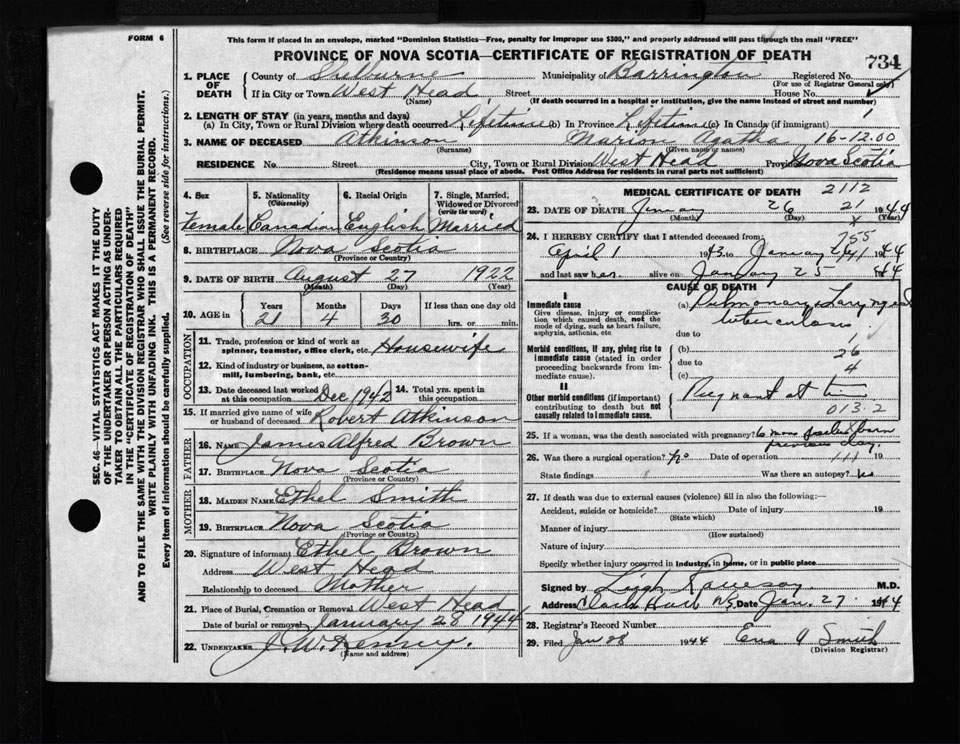 FORM 6
This form if placed in an envelope, marked "Dominion Statistics—Free, penalty for improper use $300," and properly addressed will pass through the mail "FREE"
PROVINCE OF NOVA SCOTIA—CERTIFICATE OF REGISTRATION OF DEATH
734
SEC. 46—VITAL STATISTICS ACT MAKES IT THE DUTY
OF THE UNDERTAKER OR PERSON ACTING AS UNDER-
TAKER TO OBTAIN ALL THE PARTICULARS REQUIRED
IN THE "CERTIFICATE OF REGISTRATION OF DEATH"
AND TO FILE THE SAME WITH THE DIVISION REGISTRAR WHO SHALL ISSUE THE BURIAL PERMIT.
WRITE PLAINLY WITH UNFADING INK. THIS IS A PERMANENT RECORD.
Every item of information should be carefully supplied. (See reverse side for instructions.)
1. PLACE OF DEATH County of Shelburne Municipality of Barrington Registered No.
(For use of Registrar General only)
If in City or Town West Head Street House No.
(Name) (If death occurred in a hospital or institution, give the name instead of street and number)
2. LENGTH OF STAY (in years, months and days)
(a) In City, Town or Rural Division where death occurred Lifetime (b) In Province Lifetime (c) In Canada (if immigrant)
3. NAME OF DECEASED Atkinson Marion Agatha 16-12.00
(Surname) (Given name or names)
RESIDENCE No. Street City, Town or Rural Division West Head Province Nova Scotia
(Residence means usual place of abode. Post Office Address for residents in rural parts not sufficient)
4. Sex 5. Nationality (Citizenship) 6. Racial Origin 7. Single, Married, Widowed or Divorced (write the word)
Female Canadian English Married
8. BIRTHPLACE Nova Scotia
(Province or Country)
9. DATE OF BIRTH August 27 1922
(Month) (Day) (Year)
10. AGE in Years Months Days If less than one day old
21 4 30 hrs. or min.
OCCUPATION
11. Trade, profession or kind of work as spinner, teamster, office clerk, etc. Housewife
12. Kind of industry or business, as cotton-mill, lumbering, bank, etc.
13. Date deceased last worked at this occupation Dec 1942 14. Total yrs. spent in this occupation
15. If married give name of wife or husband of deceased Robert Atkinson
FATHER
16. NAME James Alfred Brown
17. BIRTHPLACE Nova Scotia
(Province or Country)
MOTHER
18. MAIDEN NAME Ethel Smith
19. BIRTHPLACE Nova Scotia
(Province or Country)
20. Signature of informant Ethel Brown
Address West Head
Relationship to deceased Mother
21. Place of Burial, Cremation or Removal West Head
Date of burial or removal January 28 1944
22. UNDERTAKER J. W.
(Name and address)
MEDICAL CERTIFICATE OF DEATH 2112
23. DATE OF DEATH January 26 21 1944
(Month) (Day) (Year)
24. I HEREBY CERTIFY that I attended deceased from: 755
April 1 1943 to January 1944
and last saw her alive on January 25 1944
CAUSE OF DEATH
I
Immediate cause (a) Pulmonary Laryngeal
Give disease, injury or complication which caused death, not the mode of dying, such as heart failure, asphyxia, asthenia, etc. tuberculosis
due to 1
Morbid conditions, if any, giving rise to immediate cause (stated in order proceeding backwards from immediate cause). (b) 26
due to 4
(c)
II
Other morbid conditions (if important) contributing to death but not causally related to immediate cause. Pregnant at time
013.2
25. If a woman, was the death associated with pregnancy? 6 mons born
previous day.
26. Was there a surgical operation? No Date of operation 19
State findings Was there an autopsy? No
27. If death was due to external causes (violence) fill in also the following:—
Accident, suicide or homicide? Date of injury 19
(State which)
Manner of injury
(How sustained)
Nature of injury
Specify whether injury occurred in industry, in home, or in public place
Signed by M.D.
Address N.S. Date Jan. 27 1944
28. Registrar's Record Number
29. Filed Jan 28 1944 Smith
(Division Registrar)